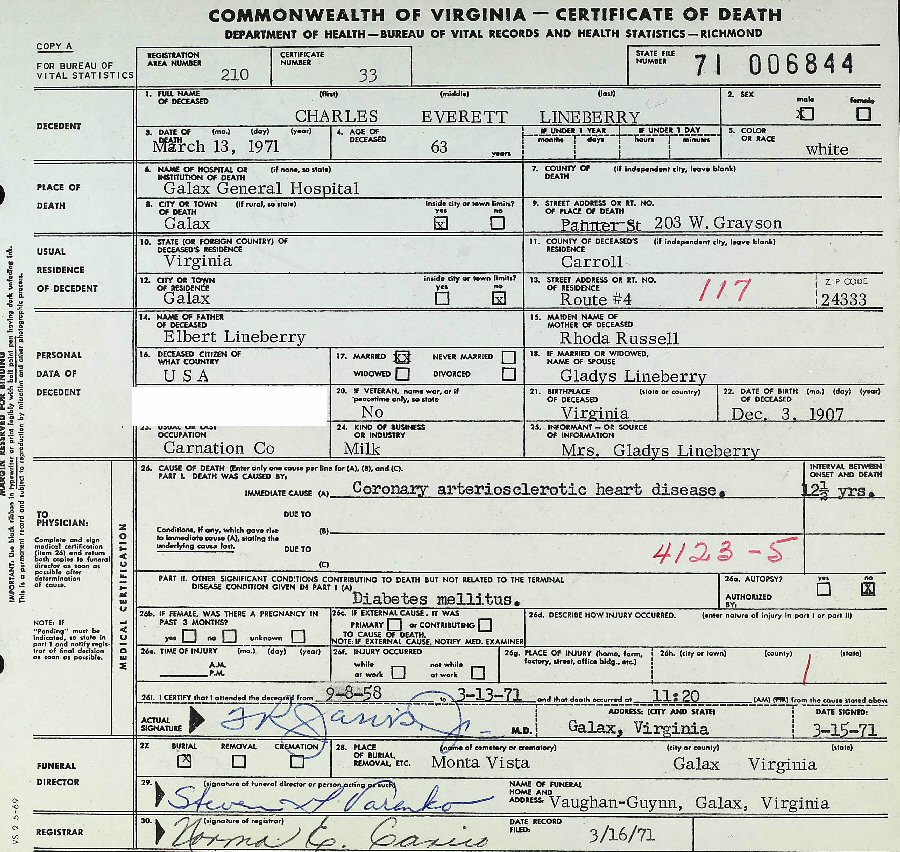 COMMONWEALTH OF VIRGINIA — CERTIFICATE OF DEATH
DEPARTMENT OF HEALTH—BUREAU OF VITAL RECORDS AND HEALTH STATISTICS—RICHMOND
COPY A
FOR BUREAU OF VITAL STATISTICS
REGISTRATION AREA NUMBER 210
CERTIFICATE NUMBER 33
STATE FILE NUMBER 71 006844
DECEDENT
1. FULL NAME OF DECEASED (first) (middle) (last)
CHARLES EVERETT LINEBERRY
2. SEX male X female
3. DATE OF DEATH (mo.) (day) (year)
March 13, 1971
4. AGE OF DECEASED 63 years
IF UNDER 1 YEAR months days
IF UNDER 1 DAY hours minutes
5. COLOR OR RACE white
PLACE OF DEATH
6. NAME OF HOSPITAL OR INSTITUTION OF DEATH (if none, so state)
Galax General Hospital
7. COUNTY OF DEATH (if independent city, leave blank)
8. CITY OR TOWN OF DEATH (if rural, so state)
Galax
inside city or town limits? yes x no
9. STREET ADDRESS OR RT. NO. OF PLACE OF DEATH
203 W. Grayson
USUAL RESIDENCE OF DECEDENT
10. STATE (OR FOREIGN COUNTRY) OF DECEASED'S RESIDENCE
Virginia
11. COUNTY OF DECEASED'S RESIDENCE (if independent city, leave blank)
Carroll
12. CITY OR TOWN OF RESIDENCE
Galax
inside city or town limits? yes no x
13. STREET ADDRESS OR RT. NO. OF RESIDENCE
Route #4
117
ZIP CODE
24333
PERSONAL DATA OF DECEDENT
14. NAME OF FATHER OF DECEASED
Elbert Lineberry
15. MAIDEN NAME OF MOTHER OF DECEASED
Rhoda Russell
16. DECEASED CITIZEN OF WHAT COUNTRY
U S A
17. MARRIED X NEVER MARRIED
WIDOWED DIVORCED
18. IF MARRIED OR WIDOWED, NAME OF SPOUSE
Gladys Lineberry
20. IF VETERAN, name war, or if peacetime only, so state
No
21. BIRTHPLACE OF DECEASED (state or country)
Virginia
22. DATE OF BIRTH OF DECEASED (mo.) (day) (year)
Dec. 3, 1907
23. USUAL OR LAST OCCUPATION
Carnation Co
24. KIND OF BUSINESS OR INDUSTRY
Milk
25. INFORMANT — OR SOURCE OF INFORMATION
Mrs. Gladys Lineberry
MARGIN RESERVED FOR BINDING
IMPORTANT: Use black ribbon in typewriter or print legibly with ball point pen having dark unfading ink.
This is a permanent record and subject to reproduction by microfilm and other photographic process.
TO PHYSICIAN:
Complete and sign medical certification (item 26) and return both copies to funeral director as soon as possible after determination of cause.
NOTE: IF "Pending" must be indicated, so state in part 1 and notify registrar of final decision as soon as possible.
MEDICAL CERTIFICATION
26. CAUSE OF DEATH (Enter only one cause per line for (A), (B), and (C).
PART I. DEATH WAS CAUSED BY:
INTERVAL BETWEEN ONSET AND DEATH
IMMEDIATE CAUSE (A) Coronary arteriosclerotic heart disease. 12½ yrs.
DUE TO
Conditions, if any, which gave rise to immediate cause (A), stating the underlying cause last.
(B)
DUE TO
(C)
4123 -5
PART II. OTHER SIGNIFICANT CONDITIONS CONTRIBUTING TO DEATH BUT NOT RELATED TO THE TERMINAL DISEASE CONDITION GIVEN IN PART I (A)
Diabetes mellitus.
26a. AUTOPSY? yes no X
AUTHORIZED BY:
26b. IF FEMALE, WAS THERE A PREGNANCY IN PAST 3 MONTHS?
yes no unknown
26c. IF EXTERNAL CAUSE, IT WAS
PRIMARY or CONTRIBUTING
TO CAUSE OF DEATH.
NOTE: IF EXTERNAL CAUSE, NOTIFY MED. EXAMINER
26d. DESCRIBE HOW INJURY OCCURRED. (enter nature of injury in part I or part II)
26e. TIME OF INJURY (mo.) (day) (year)
A.M.
P.M.
26f. INJURY OCCURRED
while at work not while at work
26g. PLACE OF INJURY (home, farm, factory, street, office bldg., etc.)
26h. (city or town) (county) (state)
26i. I CERTIFY that I attended the deceased from 9-8-58 to 3-13-71 and that death occurred at 11:20 (AM) (PM) from the cause stated above
ACTUAL SIGNATURE
M.D.
ADDRESS: (CITY AND STATE)
Galax, Virginia
DATE SIGNED:
3-15-71
FUNERAL DIRECTOR
27. BURIAL X REMOVAL CREMATION
28. PLACE OF BURIAL, REMOVAL, ETC. (name of cemetery or crematory) (city or county) (state)
Monta Vista Galax Virginia
29. (signature of funeral director or person acting as such)
NAME OF FUNERAL HOME AND ADDRESS: Vaughan-Guynn, Galax, Virginia
REGISTRAR
30. (signature of registrar)
Norma E.
DATE RECORD FILED: 3/16/71
VS 2 5-69